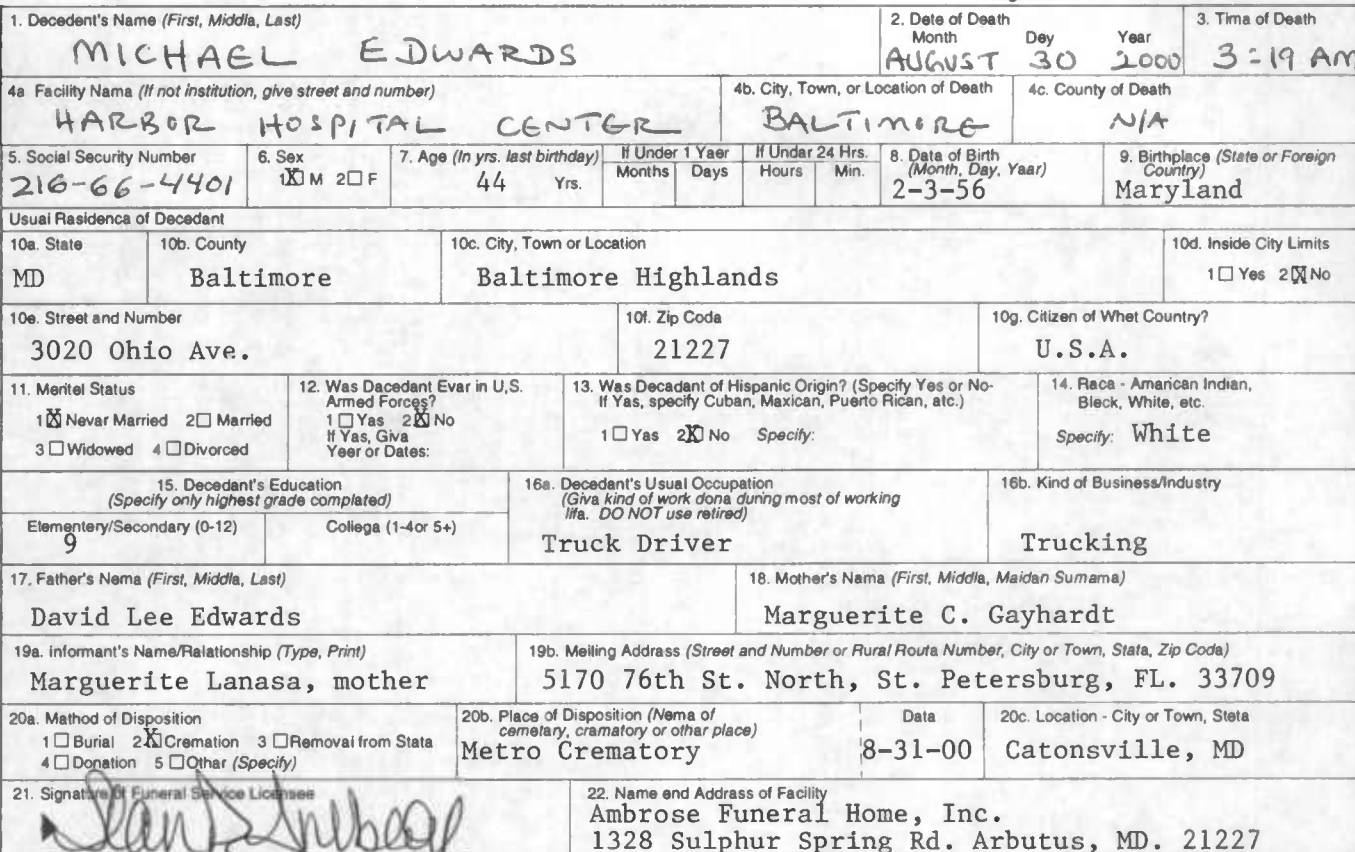 1. Decedent's Name (First, Middla, Last)
MICHAEL EDWARDS
2. Dete of Death
Month Dey Year
AUGUST 30 2000
3. Tima of Death
3:19 AM
4a Facility Name (If not institution, give street and number)
HARBOR HOSPITAL CENTER
4b. City, Town, or Location of Death
BALTIMORE
4c. County of Death
N/A
5. Social Security Number
216-66-4401
6. Sex
1 X M 2 □ F
7. Age (In yrs. last birthday)
44 Yrs.
If Under 1 Yaer
Months Days
If Undar 24 Hrs.
Hours Min.
8. Data of Birth
(Month, Day, Yaar)
2-3-56
9. Birthplace (State or Foreign
Country)
Maryland
Usuai Rasidenca of Decedant
10a. State
MD
10b. County
Baltimore
10c. City, Town or Location
Baltimore Highlands
10d. Inside City Limits
1 □ Yes 2 X No
10e. Street and Number
3020 Ohio Ave.
10f. Zip Coda
21227
10g. Citizen of Whet Country?
U.S.A.
11. Meritel Status
1 X Nevar Married 2 □ Married
3 □ Widowed 4 □ Divorced
12. Was Dacedant Evar in U.S.
Armed Forces?
1 □ Yas 2 X No
If Yas, Giva
Yeer or Dates:
13. Was Decadant of Hispanic Origin? (Specify Yes or No-
If Yas, specify Cuban, Maxican, Puerto Rican, atc.)
1 □ Yas 2 X No Specify:
14. Raca - Amarican Indian,
Bleck, White, etc.
Specify: White
15. Decedant's Education
(Specify only highest grade complated)
Elementery/Secondary (0-12)
9
Coliega (1-4or 5+)
16a. Decedant's Usual Occupation
(Giva kind of work dona during most of working
lifa. DO NOT use retired)
Truck Driver
16b. Kind of Business/Industry
Trucking
17. Father's Nema (First, Middla, Last)
David Lee Edwards
18. Mother's Nama (First, Middla, Maidan Sumama)
Marguerite C. Gayhardt
19a. informant's Name/Ralationship (Type, Print)
Marguerite Lanasa, mother
19b. Meiling Address (Street and Number or Rural Routa Number, City or Town, Stata, Zip Coda)
5170 76th St. North, St. Petersburg, FL. 33709
20a. Mathod of Disposition
1 □ Burial 2 X Cremation 3 □ Removal from Stata
4 □ Donation 5 □ Othar (Specify)
20b. Place of Disposition (Nema of
cemetary, cramatory or othar place)
Metro Crematory
Data
8-31-00
20c. Location - City or Town, Steta
Catonsville, MD
21. Signature of Funeral Service Licensee
22. Name end Addrass of Facility
Ambrose Funeral Home, Inc.
1328 Sulphur Spring Rd. Arbutus, MD. 21227